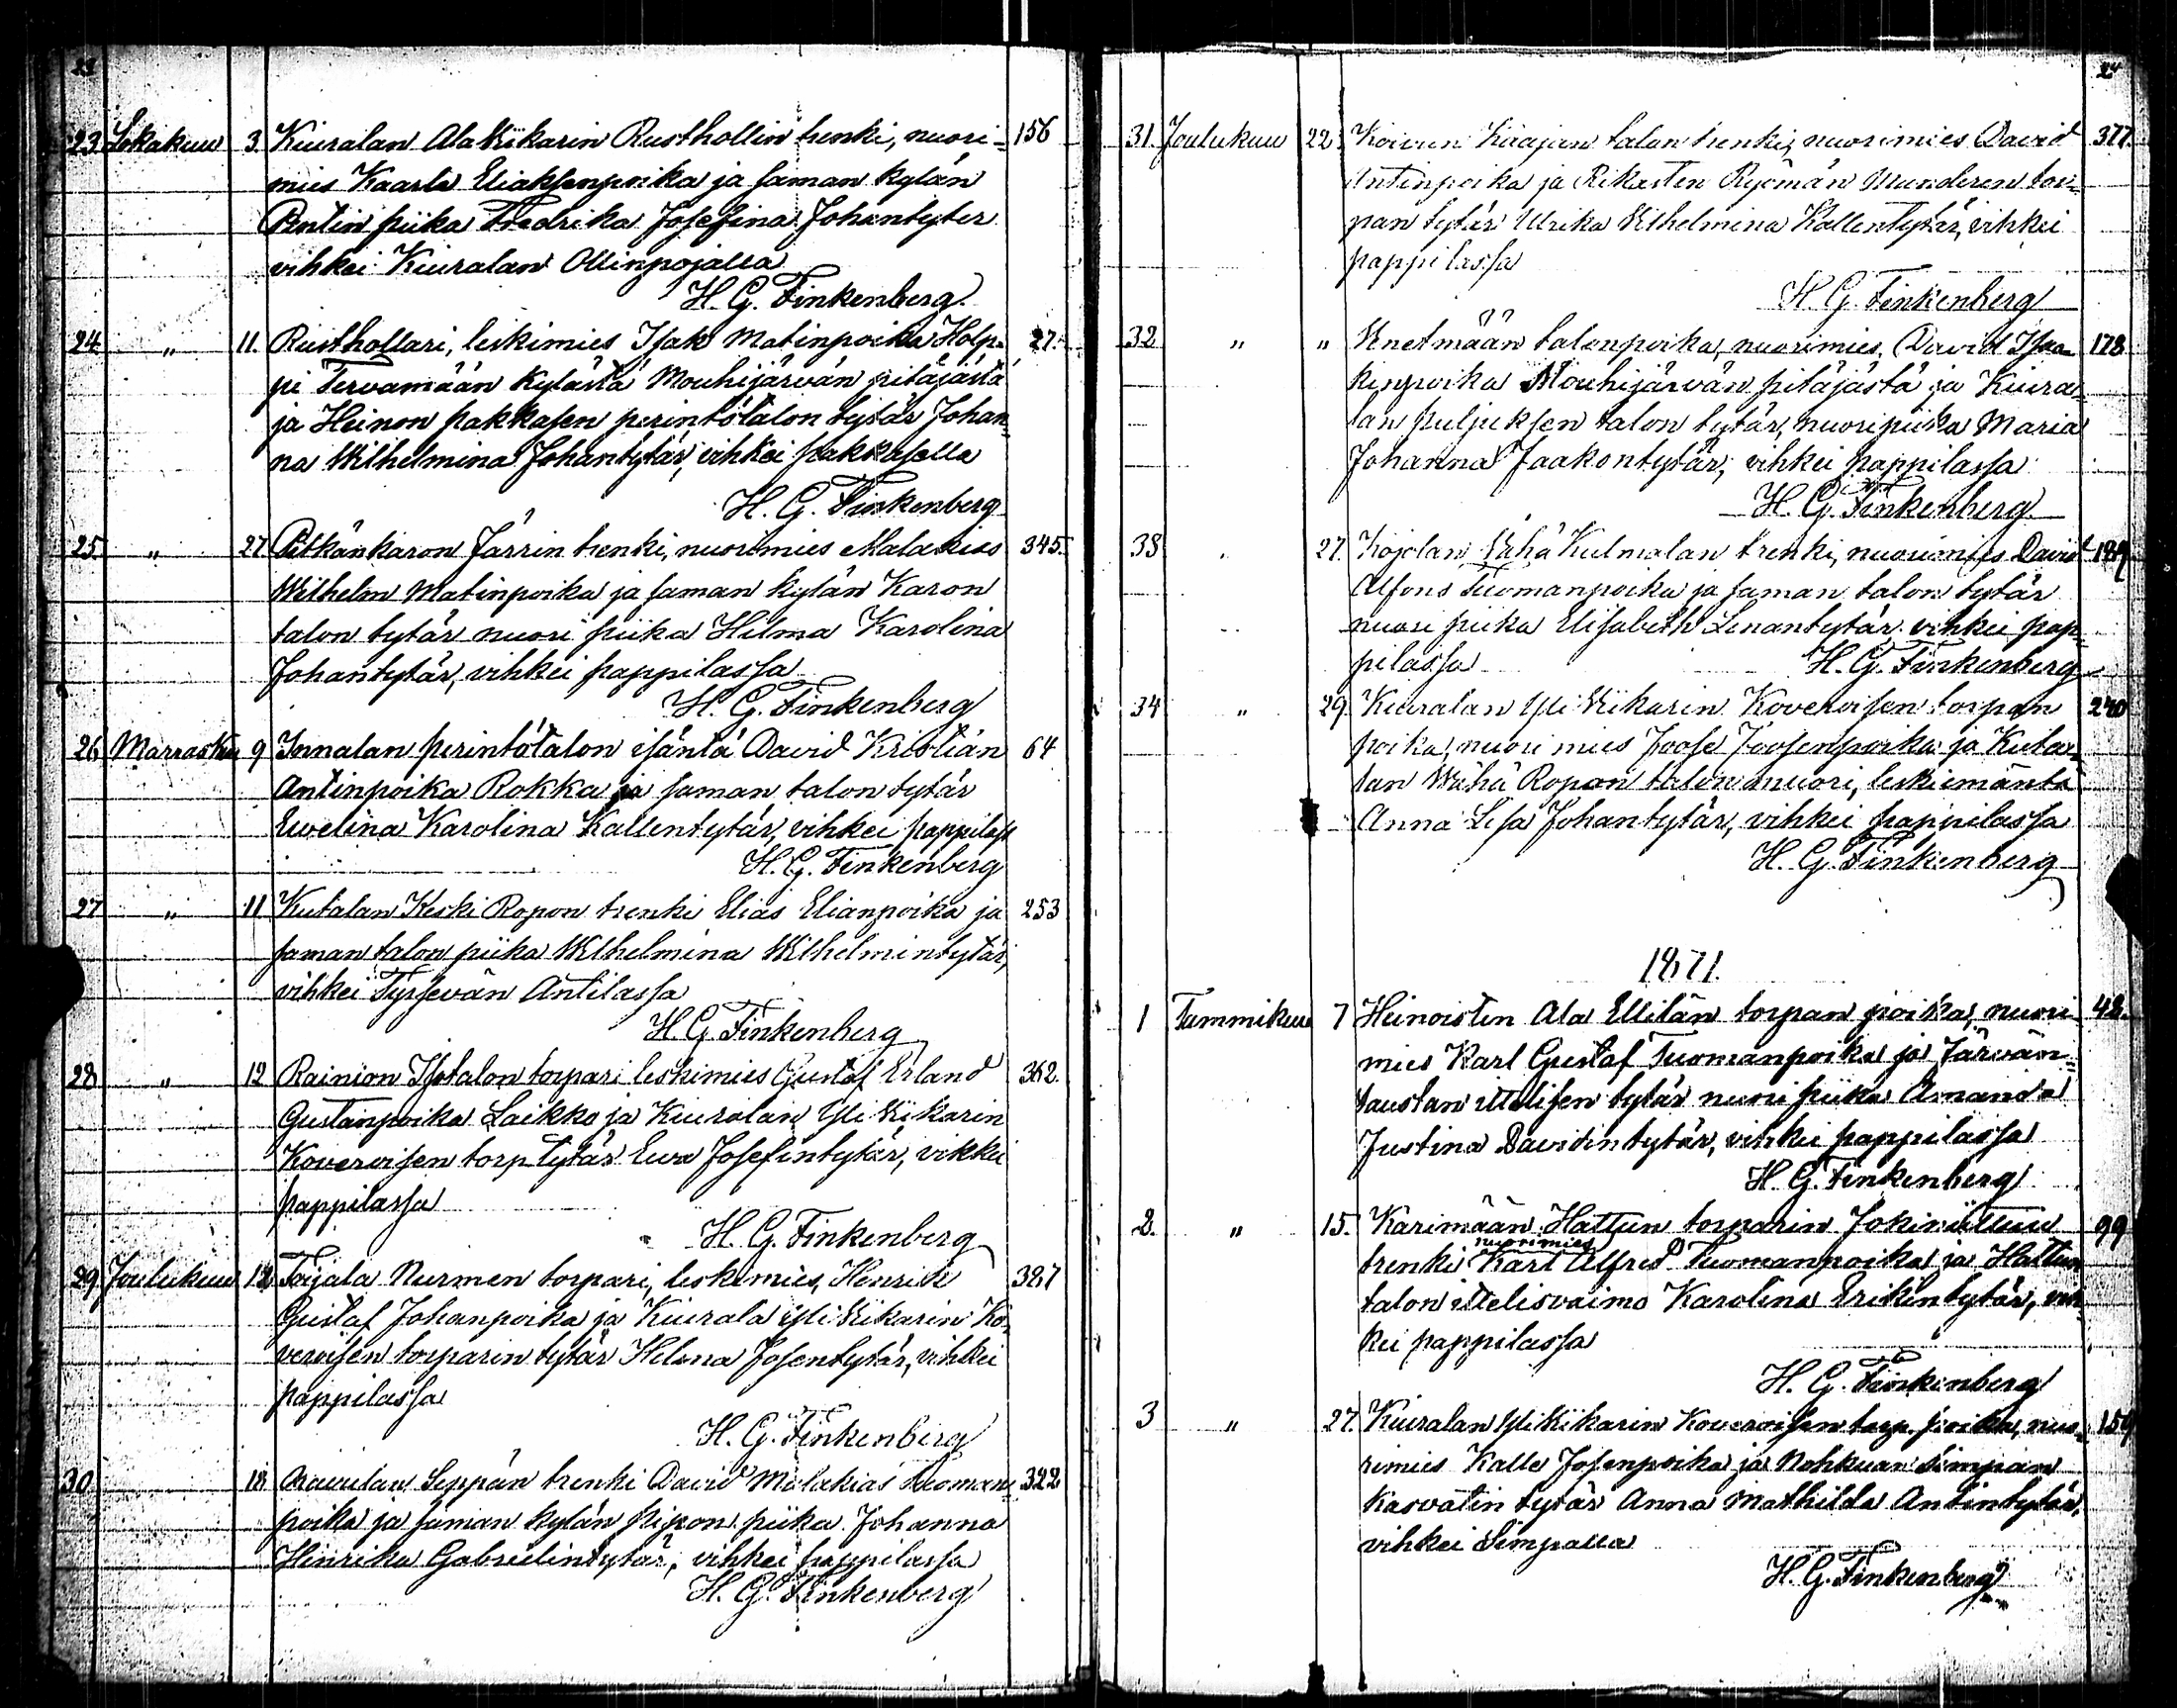 23
23 Lokakuu 3. Kiuralan Ala Kikarin Rusthollin trenki, nuori= 156
mies Kaarle Eliaksenpoika ja saman kylän
Pentin piika Fredrika Josefina Johantyter
vihkei Kiuralan Ollinpojalla
H. G. Finkenberg
24 " 11. Rusthollari, leskimies Isak Matinpoika Holp= 27.
pi Tervamään kylästä Mouhijärvän pitäjästä
ja Heinon pakkasen perintötalon tytär Johan=
na Wilhelmina Johantytär, vihkei pakkasella
H. G. Finkenberg
25 " 27 Pitkänkaron Järrin trenki, nuorimies Malakias 345.
Wilhelm Matinpoika ja saman kylän Karon
talon tytär nuori piika Hilma Karolina
Johantytär, vihkei pappilassa
H. G. Finkenberg
26 Marraskuu 9 Innalan perintötalon isäntä David Kristian 64
Antinpoika Rokka ja saman talon tytär
Ewelina Karolina Kallentytär, vihkei pappilass
H. G. Finkenberg
27 " 11 Kutalan Keski Ropon trenki Elias Elianpoika ja 253
saman talon piika Wilhelmina Wilhelmintytär,
vihkei Tyrsevän Antilassa
H. G. Finkenberg
28 " 12 Rainion Isotalon torpari leskimies Gustaf Erland 362.
Gustanpoika Laikko ja Kiuralan Yli Kikarin
Koveroisen torp tytär Ewa Josefintytär, vikkei
pappilassa
H. G. Finkenberg
29 Joulukuu 12 Toijala Nurmen torpari, leskimies, Henrik 327
Gustaf Johanpoika ja Kiurala Yli Kikarin Ko=
veroisen torparin tytär Helena Josentytär, vihkei
pappilassa
H. G. Finkenberg
30 18 Seppän trenki David Malakias Tuoman= 322
poika ja saman kylän piipon piika Johanna
Hinrika Gabrielintytär, vihkei pappilassa
H. G. Finkenberg
24
31. Joulukuu 22. Koivun Kaajan talon trenki, nuorimies David 377.
Antinpoika ja Rikasten Ryömän Munderen tor=
pan tytär Ulrika Wilhelmina Kallentytär, vihkei
pappilassa
H. G. Finkenberg
32 " " talonpoika, nuorimies, David Isaa= 178
kinpoika Mouhijärvän pitäjästä ja Kiura=
lan puljuksen talon tytär, nuoripiika Maria
Johanna Jaakontytär, vihkei pappilassa
H. G. Finkenberg
33 " 27. Kojolan Vähä Kulmalan trenki, nuorimies David 189
Alfons Tuomanpoika ja saman talon tytär
nuori piika Elisabeth Lenantytär vihkei pap=
pilassa H. G. Finkenberg
34 " 29. Kiuralan Yli Kikarin Koveroisen torpan 240
poika, nuori mies Joose Joosenpoika ja Kuta=
lan Wähä Ropon talon nuori, leskiemäntä
Anna Lisa Johantytär, vihkei pappilassa
H. G. Finkenberg
1871.
1 Tammikuu 7 Heinoisten Ala Ellilän torpan poika, nuori 48.
mies Karl Gustaf Tuomanpoika ja Järvän=
taustan ittelisen tytär nuori piika Amanda
Justina Davidintytär, vihkei pappilassa
H. G. Finkenberg
2. " 15. Karimään Hattun torparin Jokiniittuu 99
nuorimies
trenki Karl Alfred Tuomanpoika ja Hattun
talon ittelisvaimo Karolina Erikintytär, vih=
kei pappilassa
H. G. Finkenberg
3 " 27. Kiuralan Yli Kikarin Koveroisen torp. poika, nuo= 159
rimies Kalle Josenpoika ja Nohkuan Simpan
Kasvatin tytär Anna Mathilda Antintytär,
vihkei Simpalla
H. G. Finkenberg